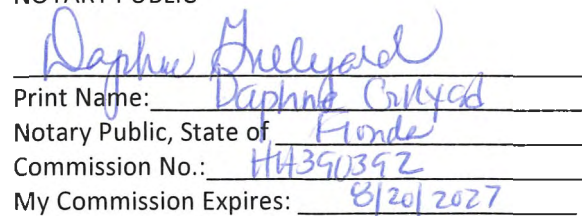 NOTARY PUBLIC
Daphne
Print Name: Daphne
Notary Public, State of Florida
Commission No.: HH390392
My Commission Expires: 8/20/2027